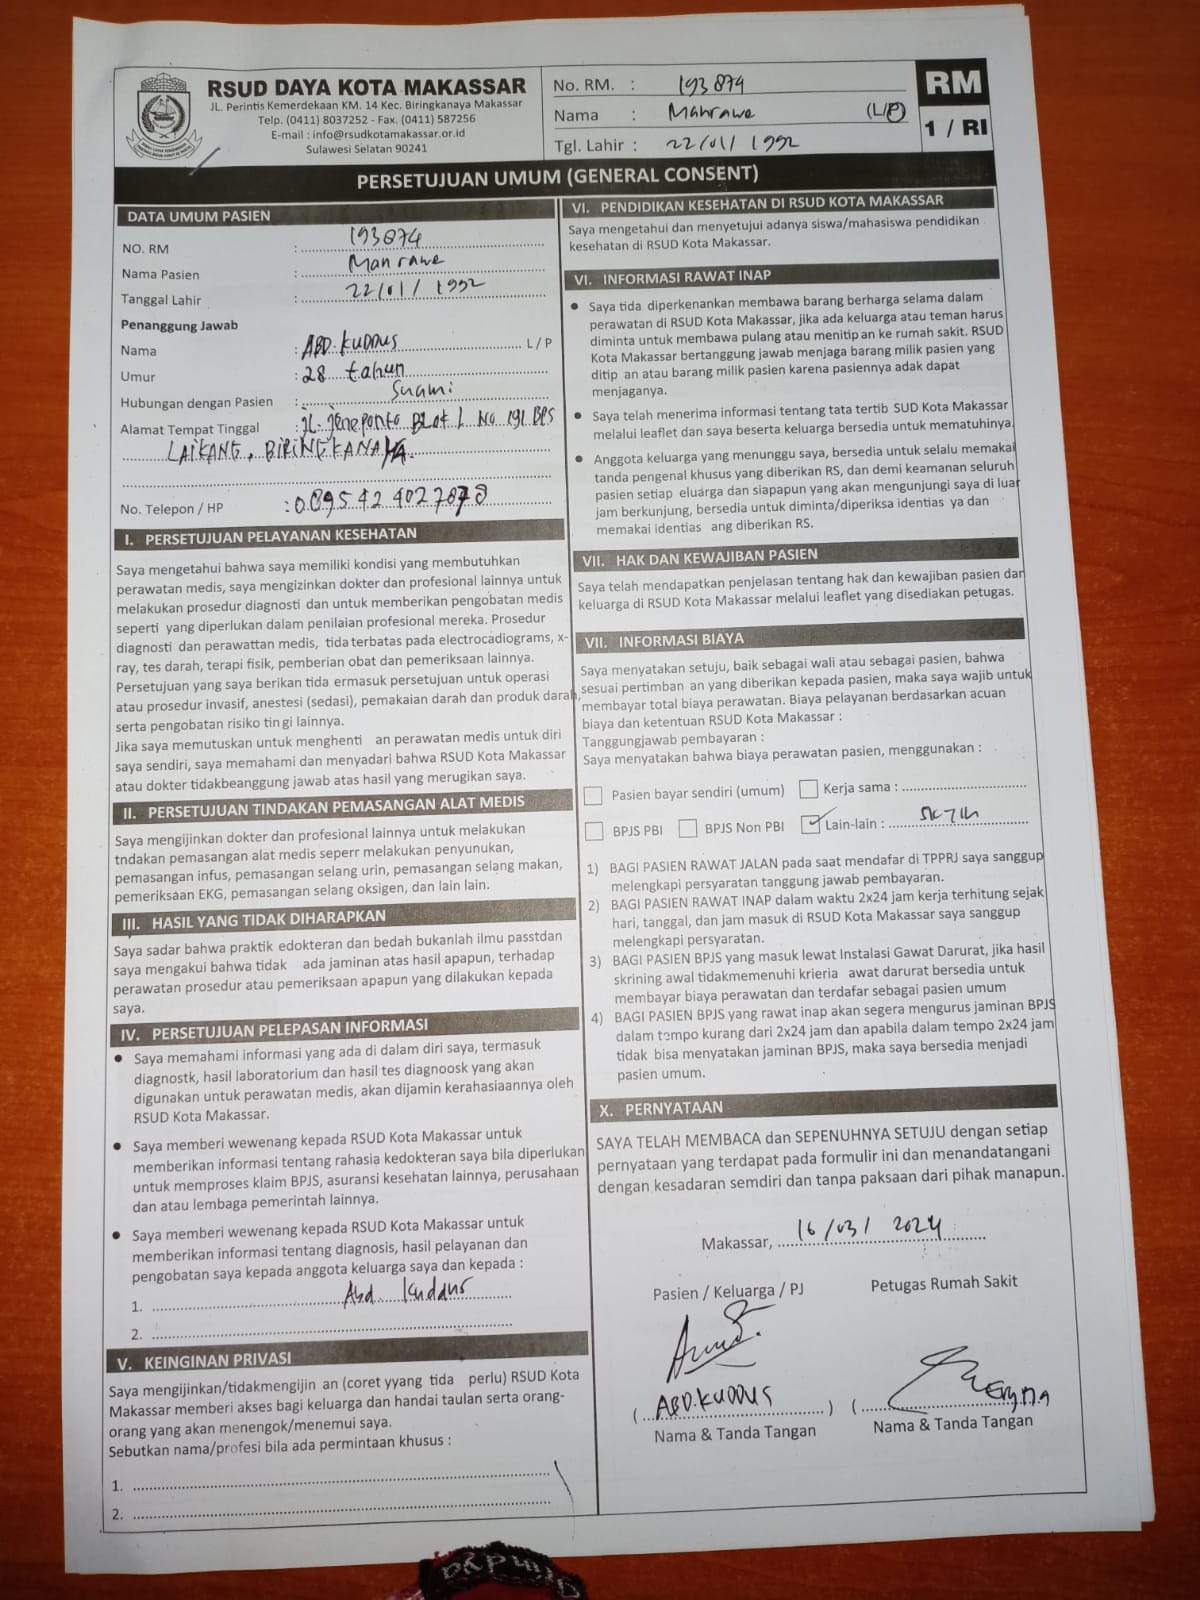 RSUD DAYA KOTA MAKASSAR
JL. Perintis Kemerdekaan KM. 14 Kec. Biringkanaya Makassar
Telp. (0411) 8037252 - Fax. (0411) 587256
E-mail : info@rsudkotamakassar.or.id
Sulawesi Selatan 90241
No. RM. : 193874
Nama : Mahrawe (L/P)
Tgl. Lahir : 22/01/1992
RM
1 / RI
PERSETUJUAN UMUM (GENERAL CONSENT)
DATA UMUM PASIEN
NO. RM : 193874
Nama Pasien : Mahrawe
Tanggal Lahir : 22/01/1992
Penanggung Jawab
Nama : ABD. KUDDUS L / P
Umur : 28 tahun
Hubungan dengan Pasien : Suami
Alamat Tempat Tinggal : jl. jeneponto Blok L No 191 BPS
LAIKANG, BIRINGKANAYA
No. Telepon / HP :
I. PERSETUJUAN PELAYANAN KESEHATAN
Saya mengetahui bahwa saya memiliki kondisi yang membutuhkan
perawatan medis, saya mengizinkan dokter dan profesional lainnya untuk
melakukan prosedur diagnosti dan untuk memberikan pengobatan medis
seperti yang diperlukan dalam penilaian profesional mereka. Prosedur
diagnosti dan perawattan medis, tidaterbatas pada electrocadiograms, x-
ray, tes darah, terapi fisik, pemberian obat dan pemeriksaan lainnya.
Persetujuan yang saya berikan tida ermasuk persetujuan untuk operasi
atau prosedur invasif, anestesi (sedasi), pemakaian darah dan produk darah,
serta pengobatan risiko tin gi lainnya.
Jika saya memutuskan untuk menghenti an perawatan medis untuk diri
saya sendiri, saya memahami dan menyadari bahwa RSUD Kota Makassar
atau dokter tidakbeanggung jawab atas hasil yang merugikan saya.
II. PERSETUJUAN TINDAKAN PEMASANGAN ALAT MEDIS
Saya mengijinkan dokter dan profesional lainnya untuk melakukan
tndakan pemasangan alat medis seperr melakukan penyunukan,
pemasangan infus, pemasangan selang urin, pemasangan selang makan,
pemeriksaan EKG, pemasangan selang oksigen, dan lain lain.
III. HASIL YANG TIDAK DIHARAPKAN
Saya sadar bahwa praktik edokteran dan bedah bukanlah ilmu passtdan
saya mengakui bahwa tidak ada jaminan atas hasil apapun, terhadap
perawatan prosedur atau pemeriksaan apapun yang dilakukan kepada
saya.
IV. PERSETUJUAN PELEPASAN INFORMASI
• Saya memahami informasi yang ada di dalam diri saya, termasuk
diagnostk, hasil laboratorium dan hasil tes diagnoosk yang akan
digunakan untuk perawatan medis, akan dijamin kerahasiaannya oleh
RSUD Kota Makassar.
• Saya memberi wewenang kepada RSUD Kota Makassar untuk
memberikan informasi tentang rahasia kedokteran saya bila diperlukan
untuk memproses klaim BPJS, asuransi kesehatan lainnya, perusahaan
dan atau lembaga pemerintah lainnya.
• Saya memberi wewenang kepada RSUD Kota Makassar untuk
memberikan informasi tentang diagnosis, hasil pelayanan dan
pengobatan saya kepada anggota keluarga saya dan kepada :
1. Abd. Kuddus
2.
V. KEINGINAN PRIVASI
Saya mengijinkan/tidakmengijin an (coret yyang tida perlu) RSUD Kota
Makassar memberi akses bagi keluarga dan handai taulan serta orang-
orang yang akan menengok/menemui saya.
Sebutkan nama/profesi bila ada permintaan khusus :
1.
2.
VI. PENDIDIKAN KESEHATAN DI RSUD KOTA MAKASSAR
Saya mengetahui dan menyetujui adanya siswa/mahasiswa pendidikan
kesehatan di RSUD Kota Makassar.
VI. INFORMASI RAWAT INAP
• Saya tida diperkenankan membawa barang berharga selama dalam
perawatan di RSUD Kota Makassar, jika ada keluarga atau teman harus
diminta untuk membawa pulang atau menitip an ke rumah sakit. RSUD
Kota Makassar bertanggung jawab menjaga barang milik pasien yang
ditip an atau barang milik pasien karena pasiennya adak dapat
menjaganya.
• Saya telah menerima informasi tentang tata tertib SUD Kota Makassar
melalui leaflet dan saya beserta keluarga bersedia untuk mematuhinya.
• Anggota keluarga yang menunggu saya, bersedia untuk selalu memakai
tanda pengenal khusus yang diberikan RS, dan demi keamanan seluruh
pasien setiap eluarga dan siapapun yang akan mengunjungi saya di luar
jam berkunjung, bersedia untuk diminta/diperiksa identias ya dan
memakai identias ang diberikan RS.
VII. HAK DAN KEWAJIBAN PASIEN
Saya telah mendapatkan penjelasan tentang hak dan kewajiban pasien dar
keluarga di RSUD Kota Makassar melalui leaflet yang disediakan petugas.
VII. INFORMASI BIAYA
Saya menyatakan setuju, baik sebagai wali atau sebagai pasien, bahwa
sesuai pertimban an yang diberikan kepada pasien, maka saya wajib untuk
membayar total biaya perawatan. Biaya pelayanan berdasarkan acuan
biaya dan ketentuan RSUD Kota Makassar :
Tanggungjawab pembayaran :
Saya menyatakan bahwa biaya perawatan pasien, menggunakan :
Pasien bayar sendiri (umum) Kerja sama :
BPJS PBI BPJS Non PBI Lain-lain :
1) BAGI PASIEN RAWAT JALAN pada saat mendafar di TPPRJ saya sanggup
melengkapi persyaratan tanggung jawab pembayaran.
2) BAGI PASIEN RAWAT INAP dalam waktu 2x24 jam kerja terhitung sejak
hari, tanggal, dan jam masuk di RSUD Kota Makassar saya sanggup
melengkapi persyaratan.
3) BAGI PASIEN BPJS yang masuk lewat Instalasi Gawat Darurat, jika hasil
skrining awal tidakmemenuhi krieria awat darurat bersedia untuk
membayar biaya perawatan dan terdafar sebagai pasien umum
4) BAGI PASIEN BPJS yang rawat inap akan segera mengurus jaminan BPJS
dalam tempo kurang dari 2x24 jam dan apabila dalam tempo 2x24 jam
tidak bisa menyatakan jaminan BPJS, maka saya bersedia menjadi
pasien umum.
X. PERNYATAAN
SAYA TELAH MEMBACA dan SEPENUHNYA SETUJU dengan setiap
pernyataan yang terdapat pada formulir ini dan menandatangani
dengan kesadaran semdiri dan tanpa paksaan dari pihak manapun.
Makassar, 16/03/2024
Pasien / Keluarga / PJ Petugas Rumah Sakit
( ABD.KUDDUS ) (
Nama & Tanda Tangan Nama & Tanda Tangan